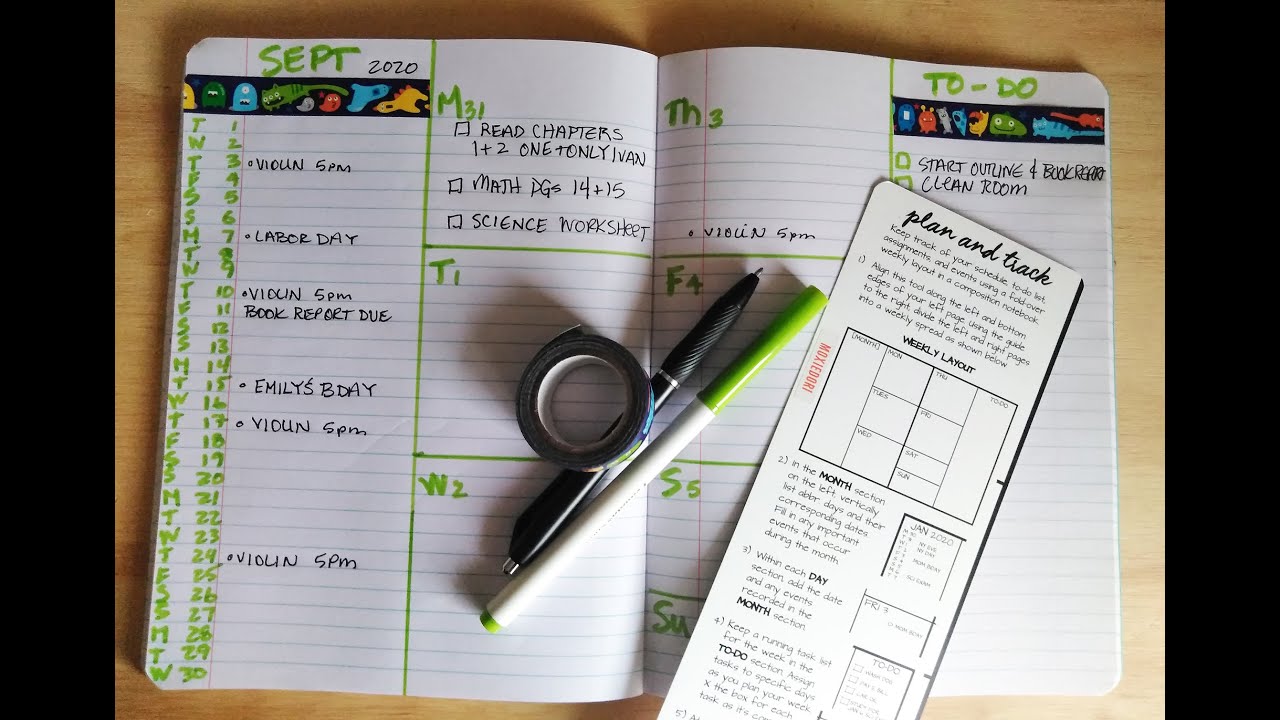 SEPT 2020
T 1
W 2
T 3 • VIOLIN 5pm
F 4
S 5
S 6
M 7 • LABOR DAY
T 8
W 9
T 10 • VIOLIN 5pm
F 11 BOOK REPORT DUE
S 12
S 13
M 14
T 15 • EMILY'S B DAY
W 16
T 17 • VIOLIN 5pm
F 18
S 19
S 20
M 21
T 22
W 23
T 24 • VIOLIN 5pm
F 25
S 26
S 27
M 28
T 29
W 30
M31
READ CHAPTERS
1+2 ONE+ONLY IVAN
MATH PGs 14+15
SCIENCE WORKSHEET
T1
W2
Th 3
• VIOLIN 5pm
F4
S5
Su
TO-DO
START OUTLINE 4 BOOK REPORT
CLEAN ROOM
plan and track
Keep track of your schedule, to-do list,
assignments, and events using a fold-over
weekly layout in a composition notebook.
1) Align this tool along the left and bottom
edges of your left page using the guide
to the right divide the left and right pages
into a weekly spread as shown below
WEEKLY LAYOUT
[MONTH]
MON
TUES
WED
THU
FRI
SAT
SUN
TO-DO
MOXIEDORI
2) In the MONTH section
on the left, vertically
list abbr. days and their
corresponding dates
Fill in any important
events that occur
during the month
JAN 2020
NY EVE
NY DAY
MOM BDAY
SCI EXAM
3) Within each DAY
section, add the date
and any events
recorded in the
MONTH section.
FRI 3
MOM BDAY
4) Keep a running task list
for the week in the
TO-DO section. Assign
tasks to specific days
as you plan your week.
X the box for each
task as it's
TO-DO
5)